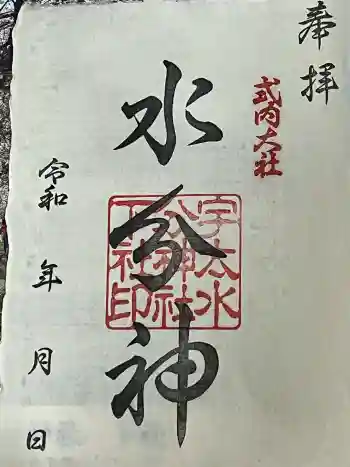 奉拝
式内大社
水分神
宇太水
分神社
下社印
令和 年 月 日